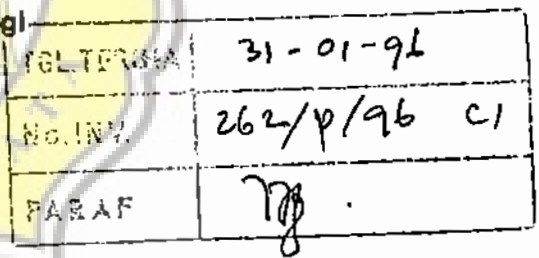 gl
TGL.TERIMA 31-01-96
No.INV. 262/p/96 C1
PARAF